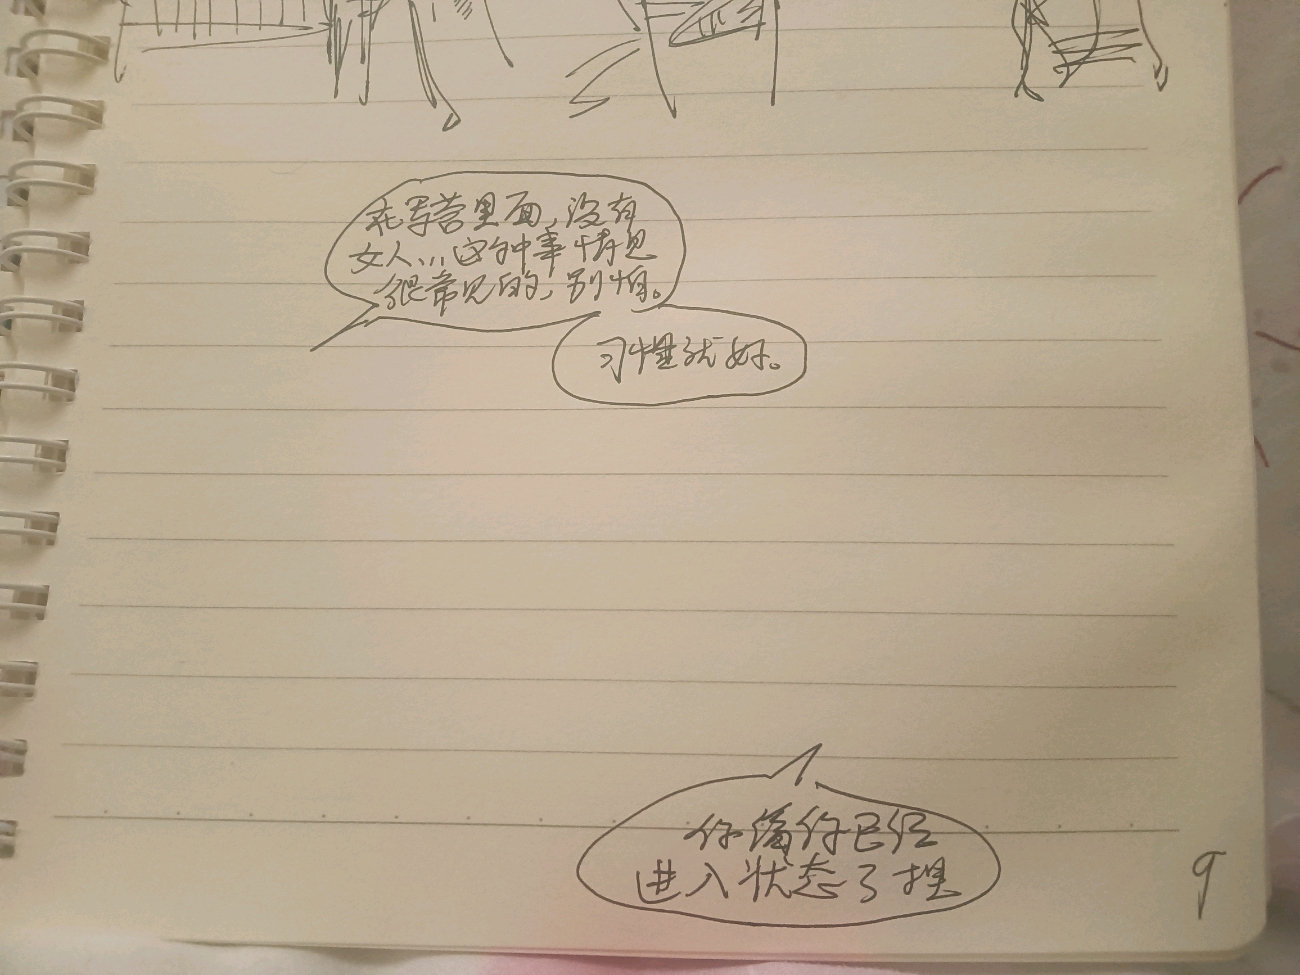 在军营里面，没有
女人...这种事情是
很常见的，别怕。
习惯就好。
你俩你已经
进入状态了
9